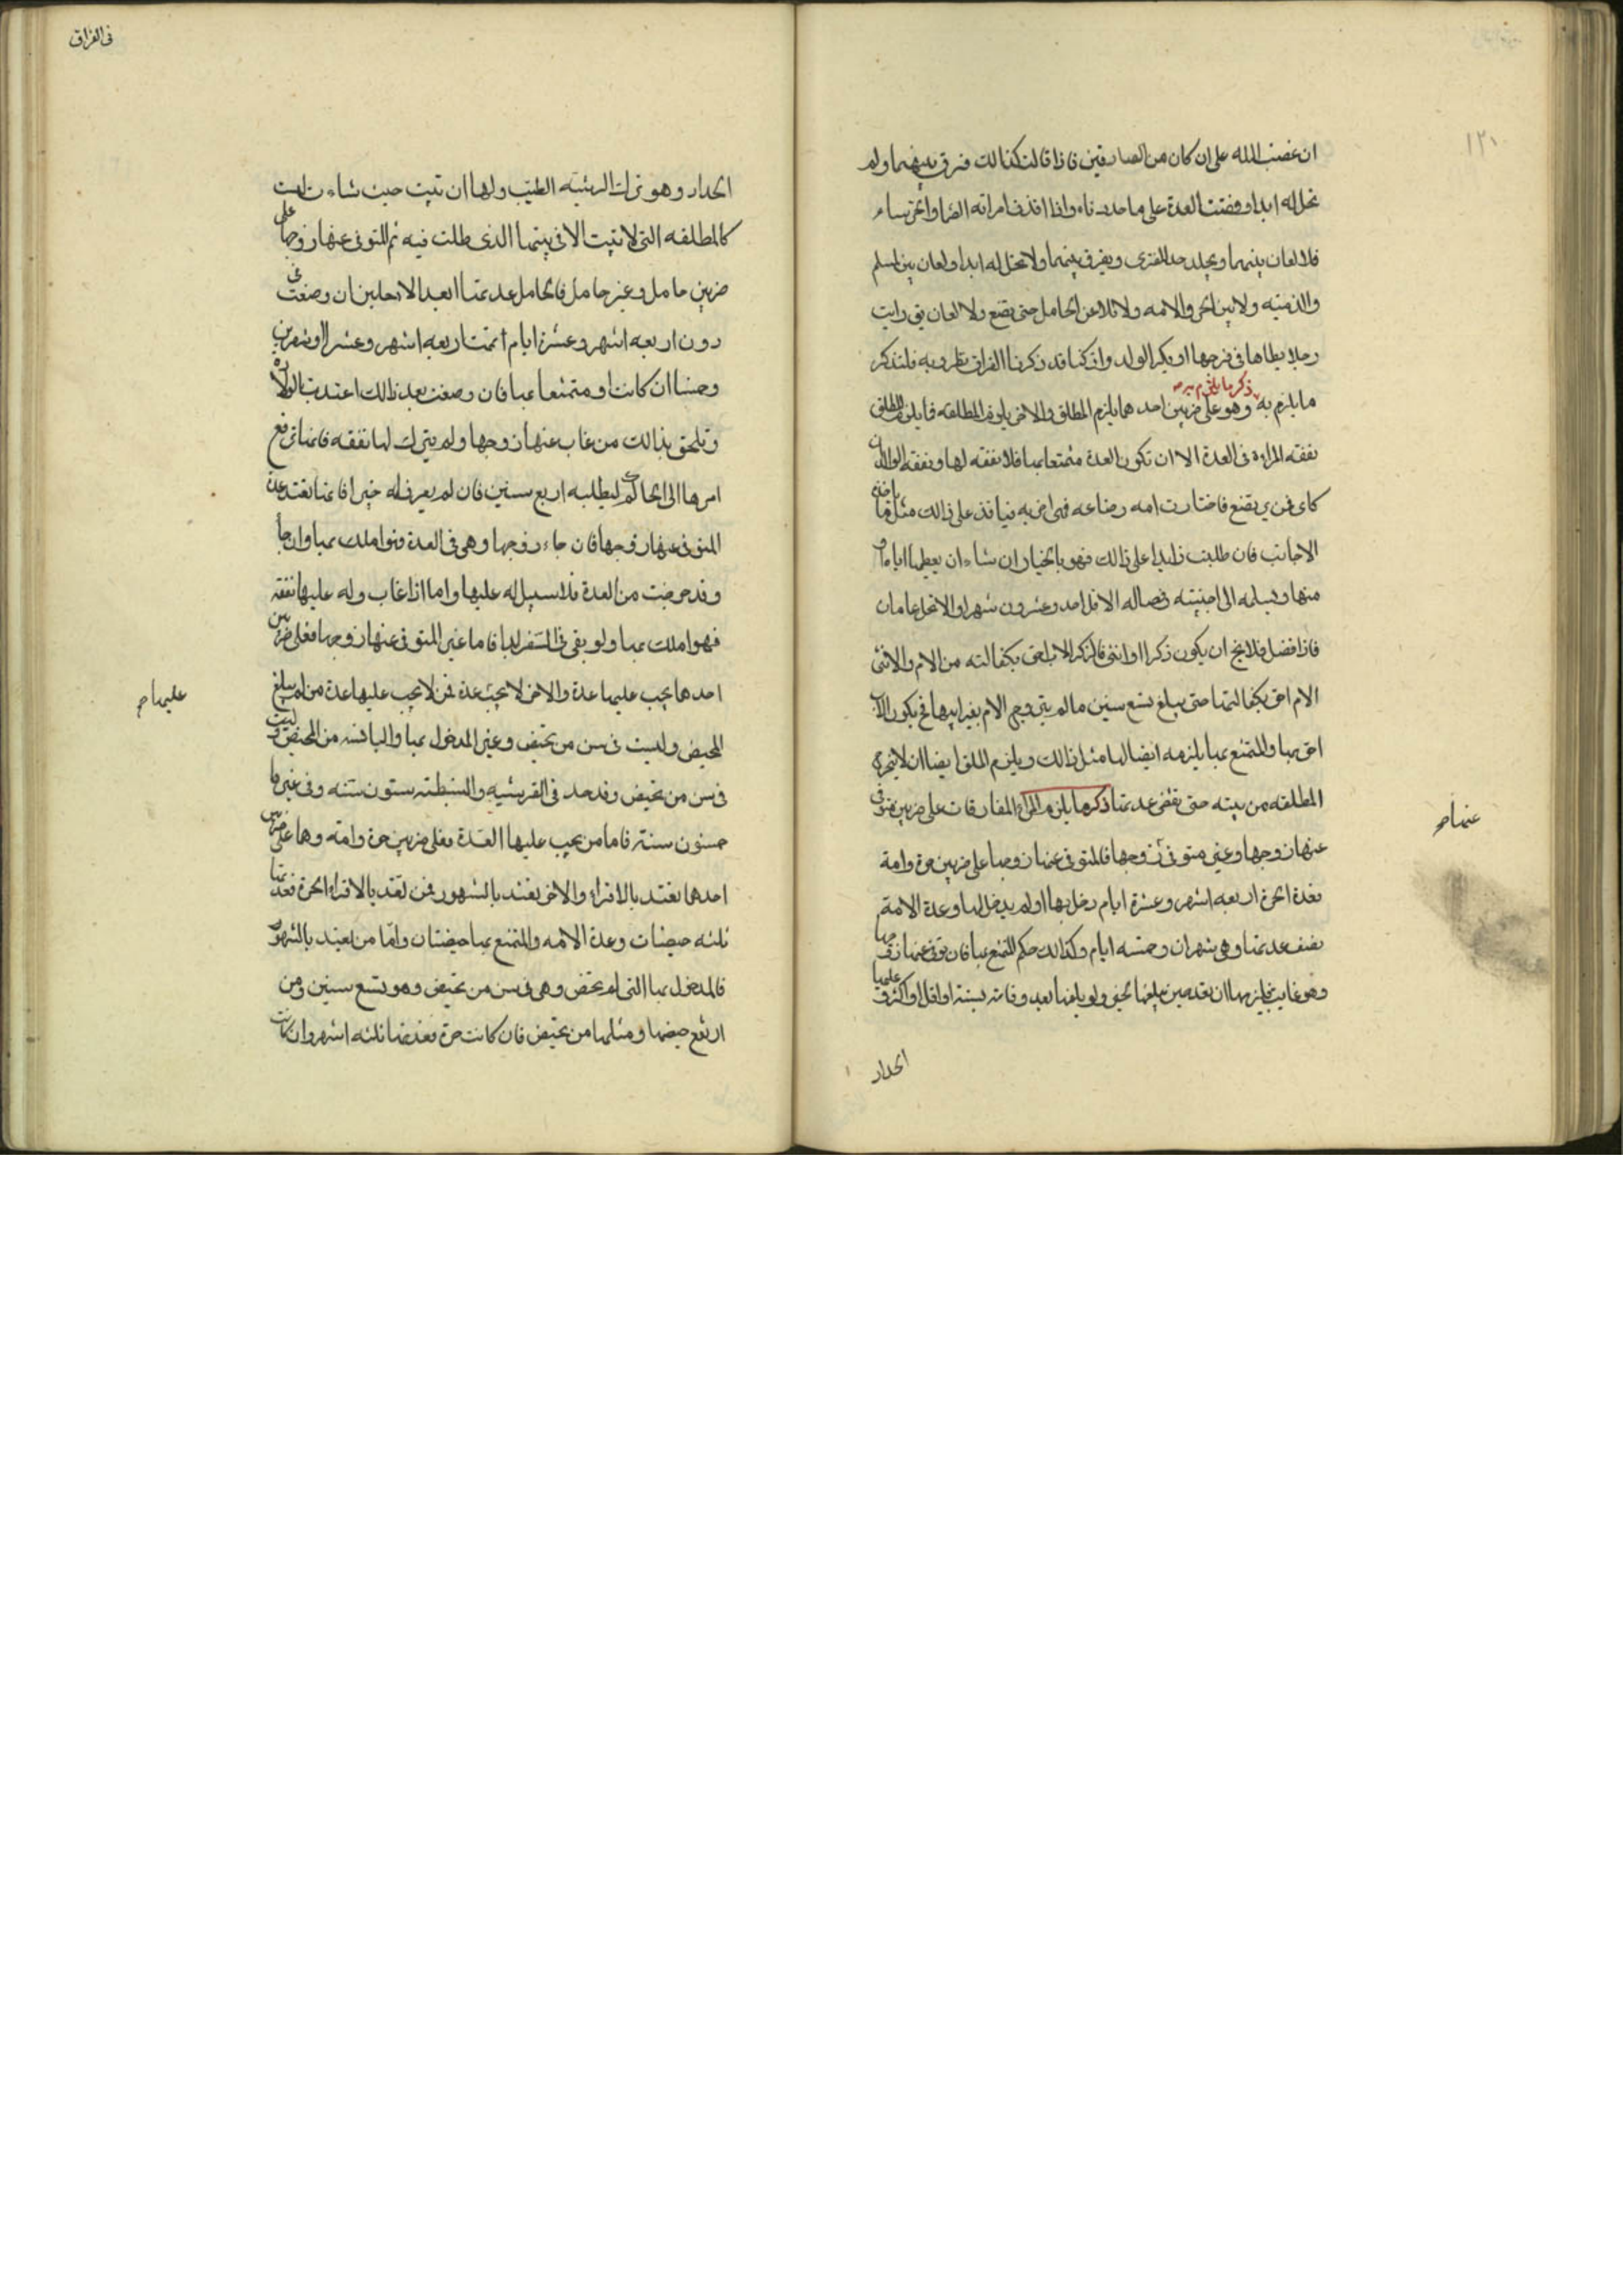 ١٢١
ان غضب الله على ان كان من الصادقين فاذا قالت كذالك فرق بينهما ولم
تحل له ابدا وقضت العدة على ما حددناه واذا قذف امراته الصماء او الخرساء
فلا لعان بينهما ويجلد حد المفترى ويفرق بينهما ولا تحل له ابدا ولعان بين المسلم
والذمية ولا بين الحر والامه ولا تلاعن الحامل حتى تضع ولا لعان رايت
رجلا يطاها فى فرجها او ينكر الولد واذ كنا قد ذكرنا الفراق فلنذكر
ذكر ما يلزم به
ما يلزم به وهو على ضربين احدهما يلزم المطلق والاخر يلزم المطلقه فما يلزم المطلق
نفقه المراءة فى العدة الا ان تكون العدة متمتعا بها فلا نفقه لها ونفقه الولد ان
كان ممن يرتضع فاختارت امه رضاعه فهى احق به فينافذ على ذالك مثل ما ياخذه
الاجانب فان طلبت زايدا على ذالك فهو بالخيار ان شاء ان يعطيها اياه او
منها ويسلمه الى اجنبيته وفصاله الاقل احد وعشرون شهرا والاكثر عامان
فاذا فصل فلا يخ ان يكون ذكرا او انثى فالذكر الاب احق بكفالته من الام والانثى
الام احق بكفالتها حتى يبلغ تسع سنين ما لم يتزوج الام بغير ابيها فح يكون الاب
احق بها والمتمتع بها يلزمه ايضا لها مثل ذالك ويلزم المطلق ايضا ان لا يخرج
المطلقه من بيته حتى تقضى عدتها ذكر ما يلزم المراة المفارقات على ضربين متوفى
عنها ص
عنها زوجها وغير متوفى زوجها فالمتوفى عنها زوجها على ضربين حرة وامة
فعدة الحرة اربعه اشهر وعشرة ايام دخل بها او لم يدخل بها وعدة الامة
نصف عدتها وهى شهران وخمسه ايام وكذالك حكم المتمتع بها فان توفى عنها زوجها
وهو غايب فيلزمها ان تعتد من حين يبلغها الخبر ولو بلغها بعد وفاته بسنة او اقل او اكثر وعليها
الحداد
فى الفراق
الحداد وهو ترك الزينه الطيب ولها ان تبيت حيث شاءت ليست
كالمطلقه التى لا تبيت الا فى بيتها الذى طلقت فيه ثم المتوفى عنها زوجها على
ضربين حامل وغير حامل فالحامل عدتها ابعد الاجلين ان وضعت فى
دون اربعه اشهر وعشرة ايام اتمت اربعه اشهر وعشرا او شهرين
وخمسا ان كانت او متمتعا بها فان وضعت بعد ذالك اعتدت بالولاده
وتلحق بذالك من غاب عنها زوجها ولم يترك لها نفقه فانها ترفع
امرها الى الحاكم ليطلبه اربع سنين فان لم يعرف له خبر فانها تعتد عدة
المتوفى عنها زوجها فان جاء زوجها وهى فى العدة فهو املك بها وان جاء
وقد خرجت من العدة فلا سبيل له عليها واما اذا غاب وله عليها نفقه
فهو املك بها ولو بقى فى السفر ابدا فاما غير المتوفى عنها زوجها فعلى ضربين
احدهما يجب عليها عدة والاخر لا يجب عدة فمن لا يجب عليها عدة من لم يبلغ
عليها ص
المحيض وليست فى سن من تحيض وغير المدخول بها واليائسه من المحيض وليست
فى سن من تحيض وقد حد فى القرشيه والنبطية ستون سنه وفى غيرها
خمسون سنة فاما من يجب عليها العدة فعلى ضربين حرة وامة وهما على ضربين
احدهما تعتد بالاقراء والاخر تعتد بالشهور فمن تعتد بالاقراء الحرة فعدتها
ثلثه حيضات وعدة الامه والمتمتع بها حيضتان واما من تعتد بالشهور
فالمدخول بها التى لم تحض وهى فى سن من تحيض وهو تسع سنين ومن
ارتفع حيضها ومثلها من تحيض فان كانت حرة فعدتها ثلثه اشهر وان كانت